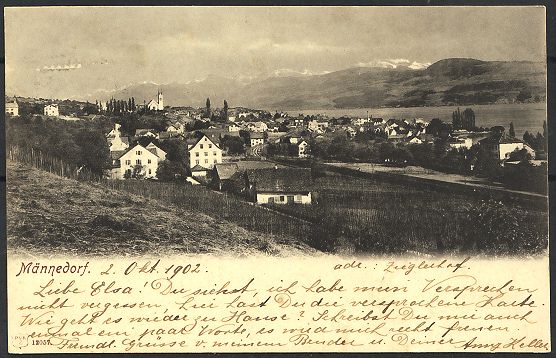 Männedorf. 2 Okt 1902. adr.: Zieglerhof
Liebe Elsa! Du siehst, ich habe mein Versprechen
nicht vergessen. hast Du die versprochene Karte.
Wie geht es wieder zu Hause? Schreibst Du mir auch
einmal ein paar Worte, es wird mich recht freuen
Freundl. Grüsse v. meinem Bruder u. Deiner Anny Heller
12057.